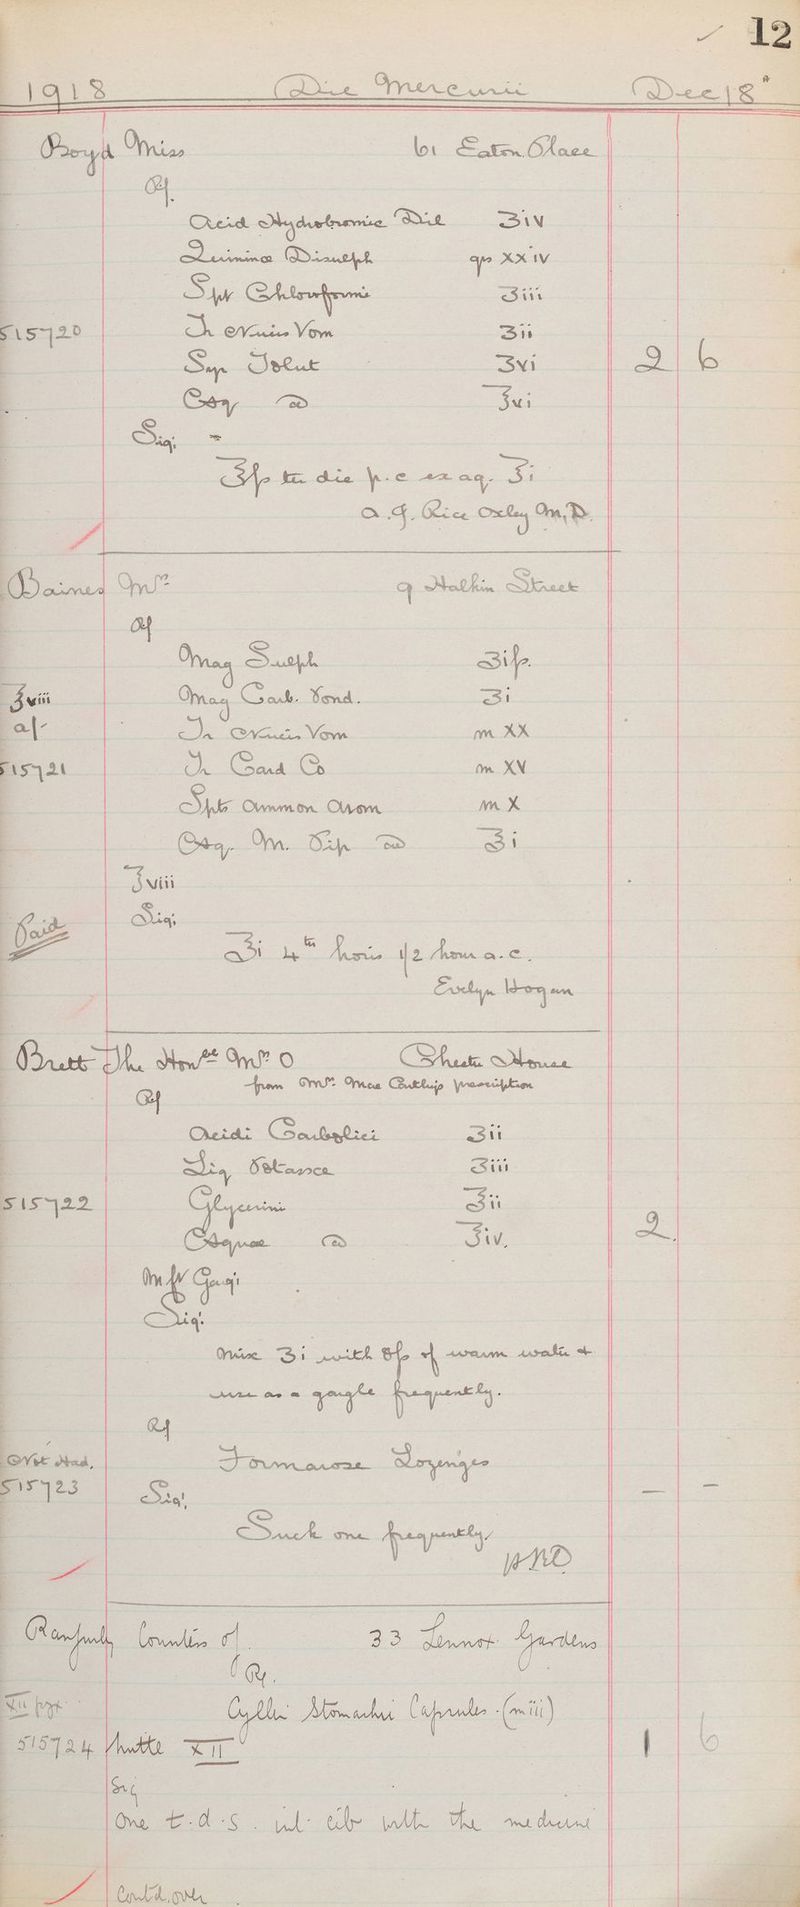 12
1918 Die Mercurii Dec 18th
Boyd Miss 61 Eaton Place
Rx.
Acid Hydrobromic Dil ʒiv
Quininae Disulph grs xxiv
Spt Chloroformi ʒiii
515720 Tr Nucis Vom ʒii
Syr Tolut ʒvi 2 6
Aq ad ℥vi
Sig:
℥ss ter die p.c ex aq. ℥i
A. J. Rice Oxley M,D.
Baines Mrs 9 Halkin Street
Rx
Mag Sulph ʒiss.
℥viii Mag Carb. Pond. ʒi
a/- Tr Nucis Vom m XX
515721 Tr Card Co m XV
Spts Ammon Arom m X
Aq. M. Pip ad ℥i
℥viii
Paid Sig:
℥i 4tis horis 1/2 hour a.c.
Evelyn Hogan
Brett The Honble Mrs O House
from Mrs prescription
Rx
Acidi Carbolici ʒii
Liq Potassae ʒiii
515722 Glycerini ℥ii
Aquae ad ℥iv. 2.
M ft Garg:
Sig:
Mix ʒi with ℥ss of warm water &
use as a gargle frequently.
Rx
Not Had. Formarose Lozenges
515723 Sig: – –
Suck one frequently.
Ranfurly Countess of 33 Lennox Gardens
Rx.
XII Cyllin Stomachic Capsules. (miii)
515724 mitte XII 1 6
Sig
One t.d.s. int. cib with the medicine
Contd. over